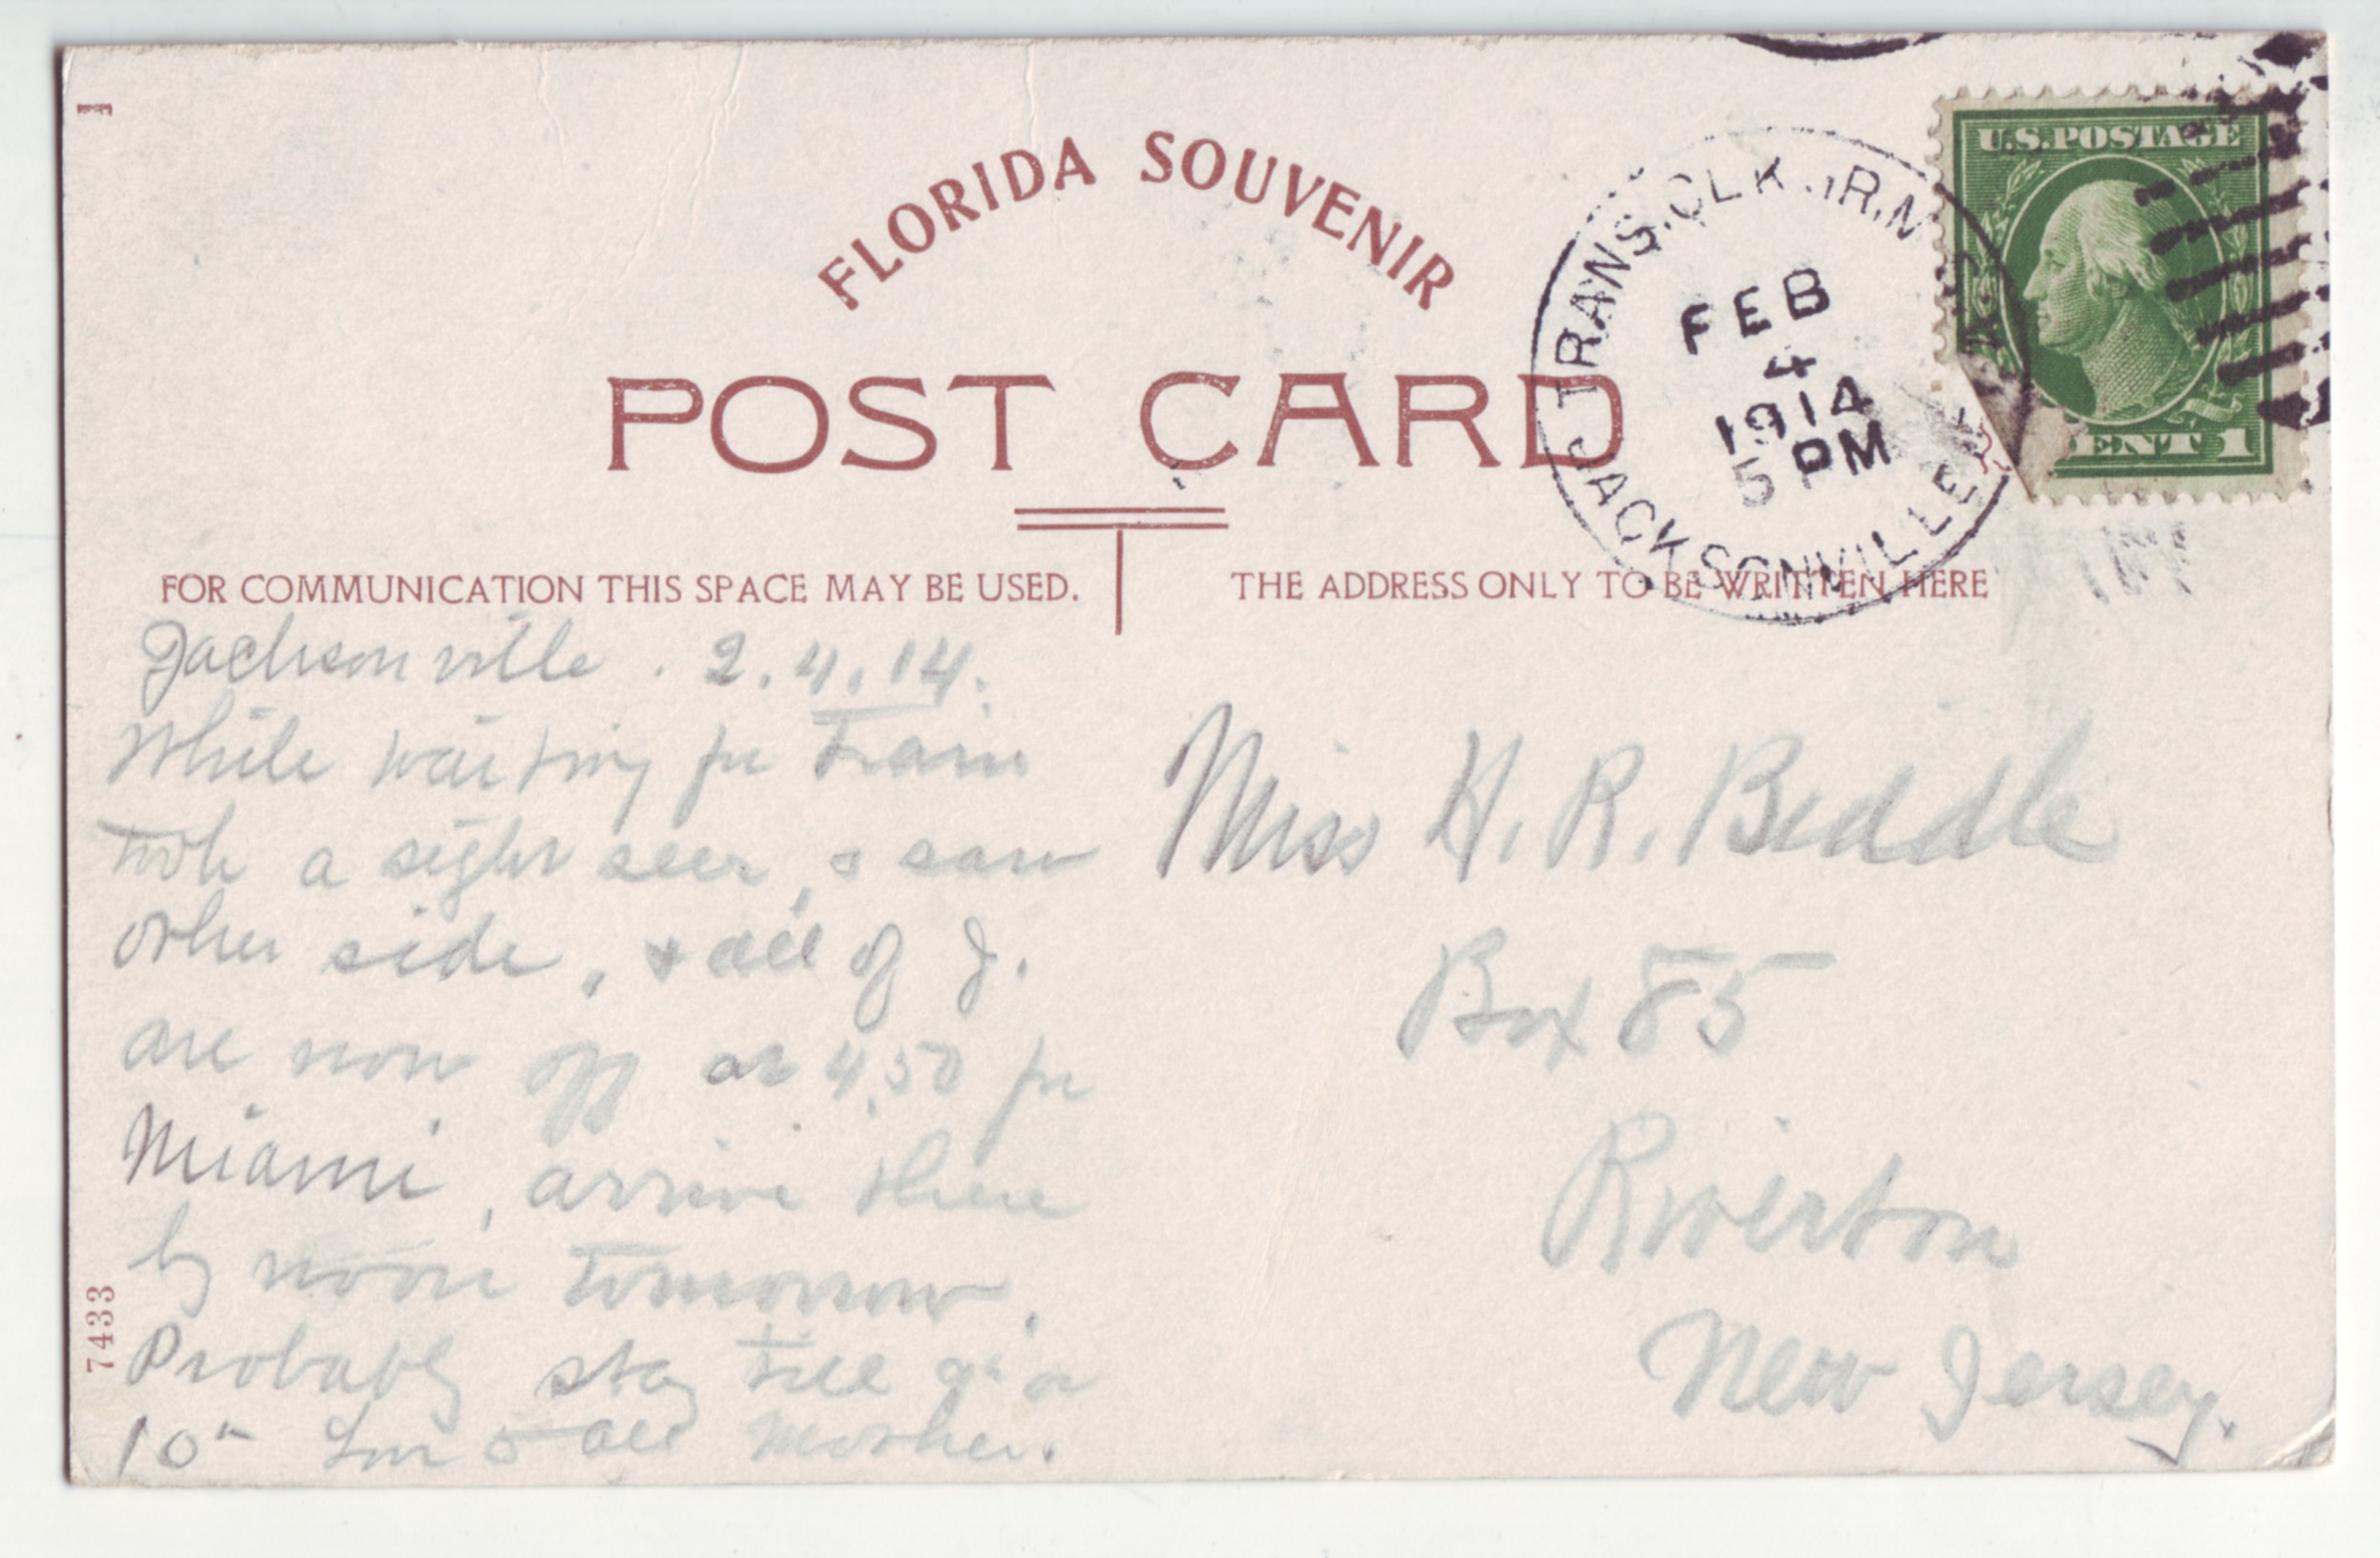 FLORIDA SOUVENIR
POST CARD
TRANS. CLK. R.M
JACKSONVILLE
FEB
4
1914
5 PM
U.S. POSTAGE
CENT 1
FOR COMMUNICATION THIS SPACE MAY BE USED.
THE ADDRESS ONLY TO BE WRITTEN HERE
Jacksonville. 2.4.14.
While waiting for train
took a sight seer, & saw
other side, & all of J.
are now off at 4.50 for
Miami, arrive there
by noon tomorrow.
Probably stay till 9th or
10th Love to all Mother.
Miss H. R. Biddle
Box 85
Riverton
New Jersey.
7433